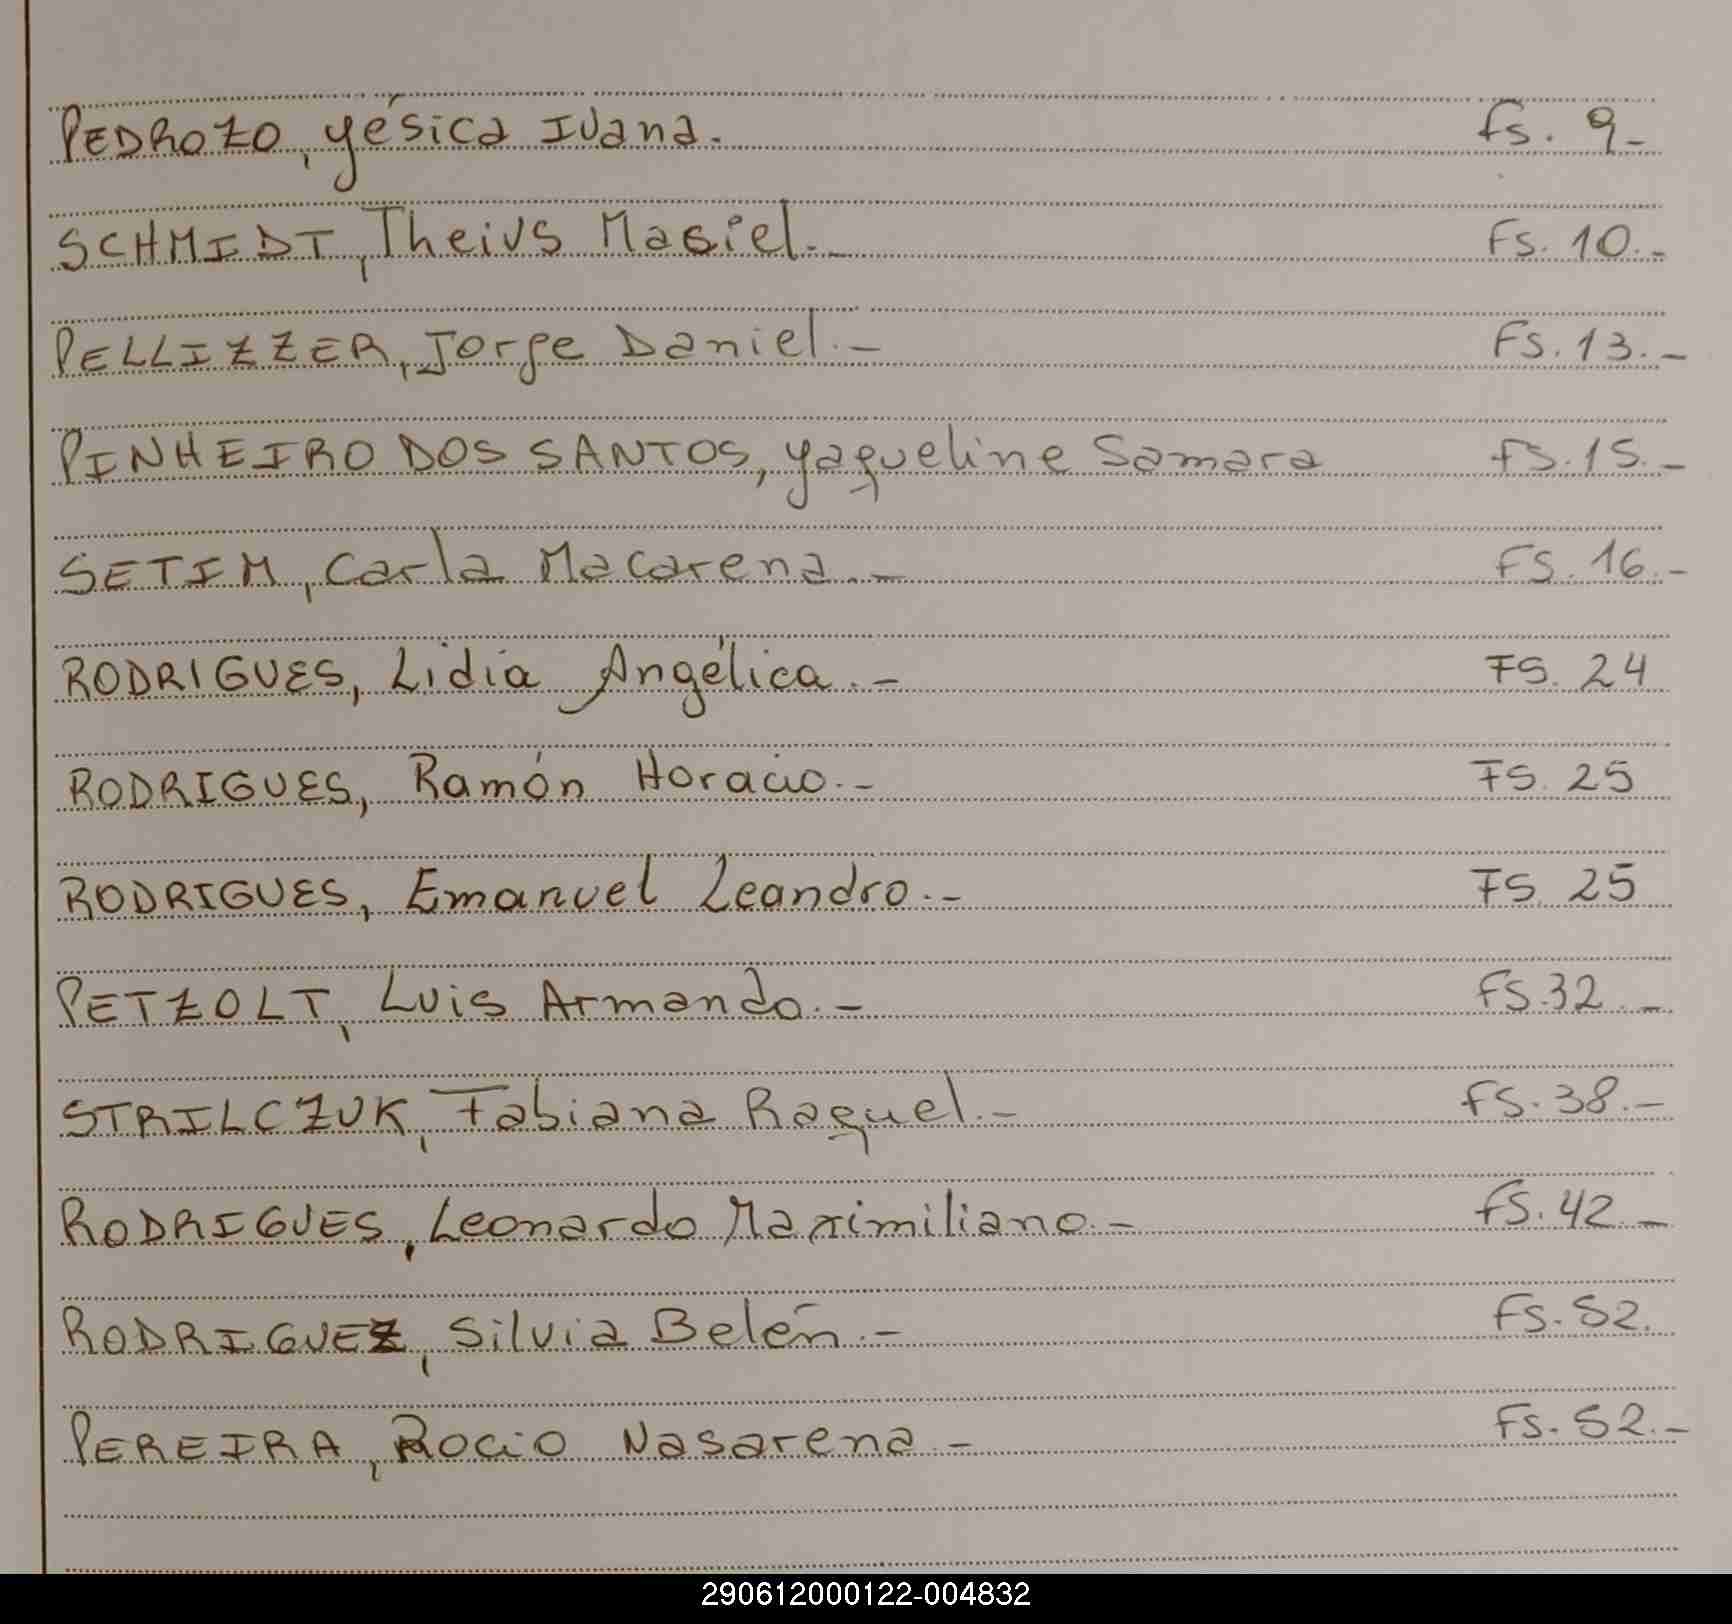 PEDROZO, Yésica Ivana. fs. 9-
SCHMIDT, Theivs Masiel.- Fs. 10.-
PELLIZZER, Jorge Daniel.- Fs. 13.-
PINHEIRO DOS SANTOS, Yaqueline Samara fs. 15.-
SETIM, Carla Macarena.- FS. 16.-
RODRIGUES, Lidia Angélica.- FS. 24
RODRIGUES, Ramón Horacio.- FS. 25
RODRIGUES, Emanuel Leandro.- FS. 25
PETZOLT, Luis Armando.- fs. 32.-
STRILCZUK, Fabiana Raquel.- fs. 38.-
RODRIGUES, Leonardo Maximiliano.- fs. 42.-
RODRIGUEZ, Silvia Belén.- Fs. 52.
PEREIRA, Rocio Nasarena.- Fs. 52.-
290612000122-004832